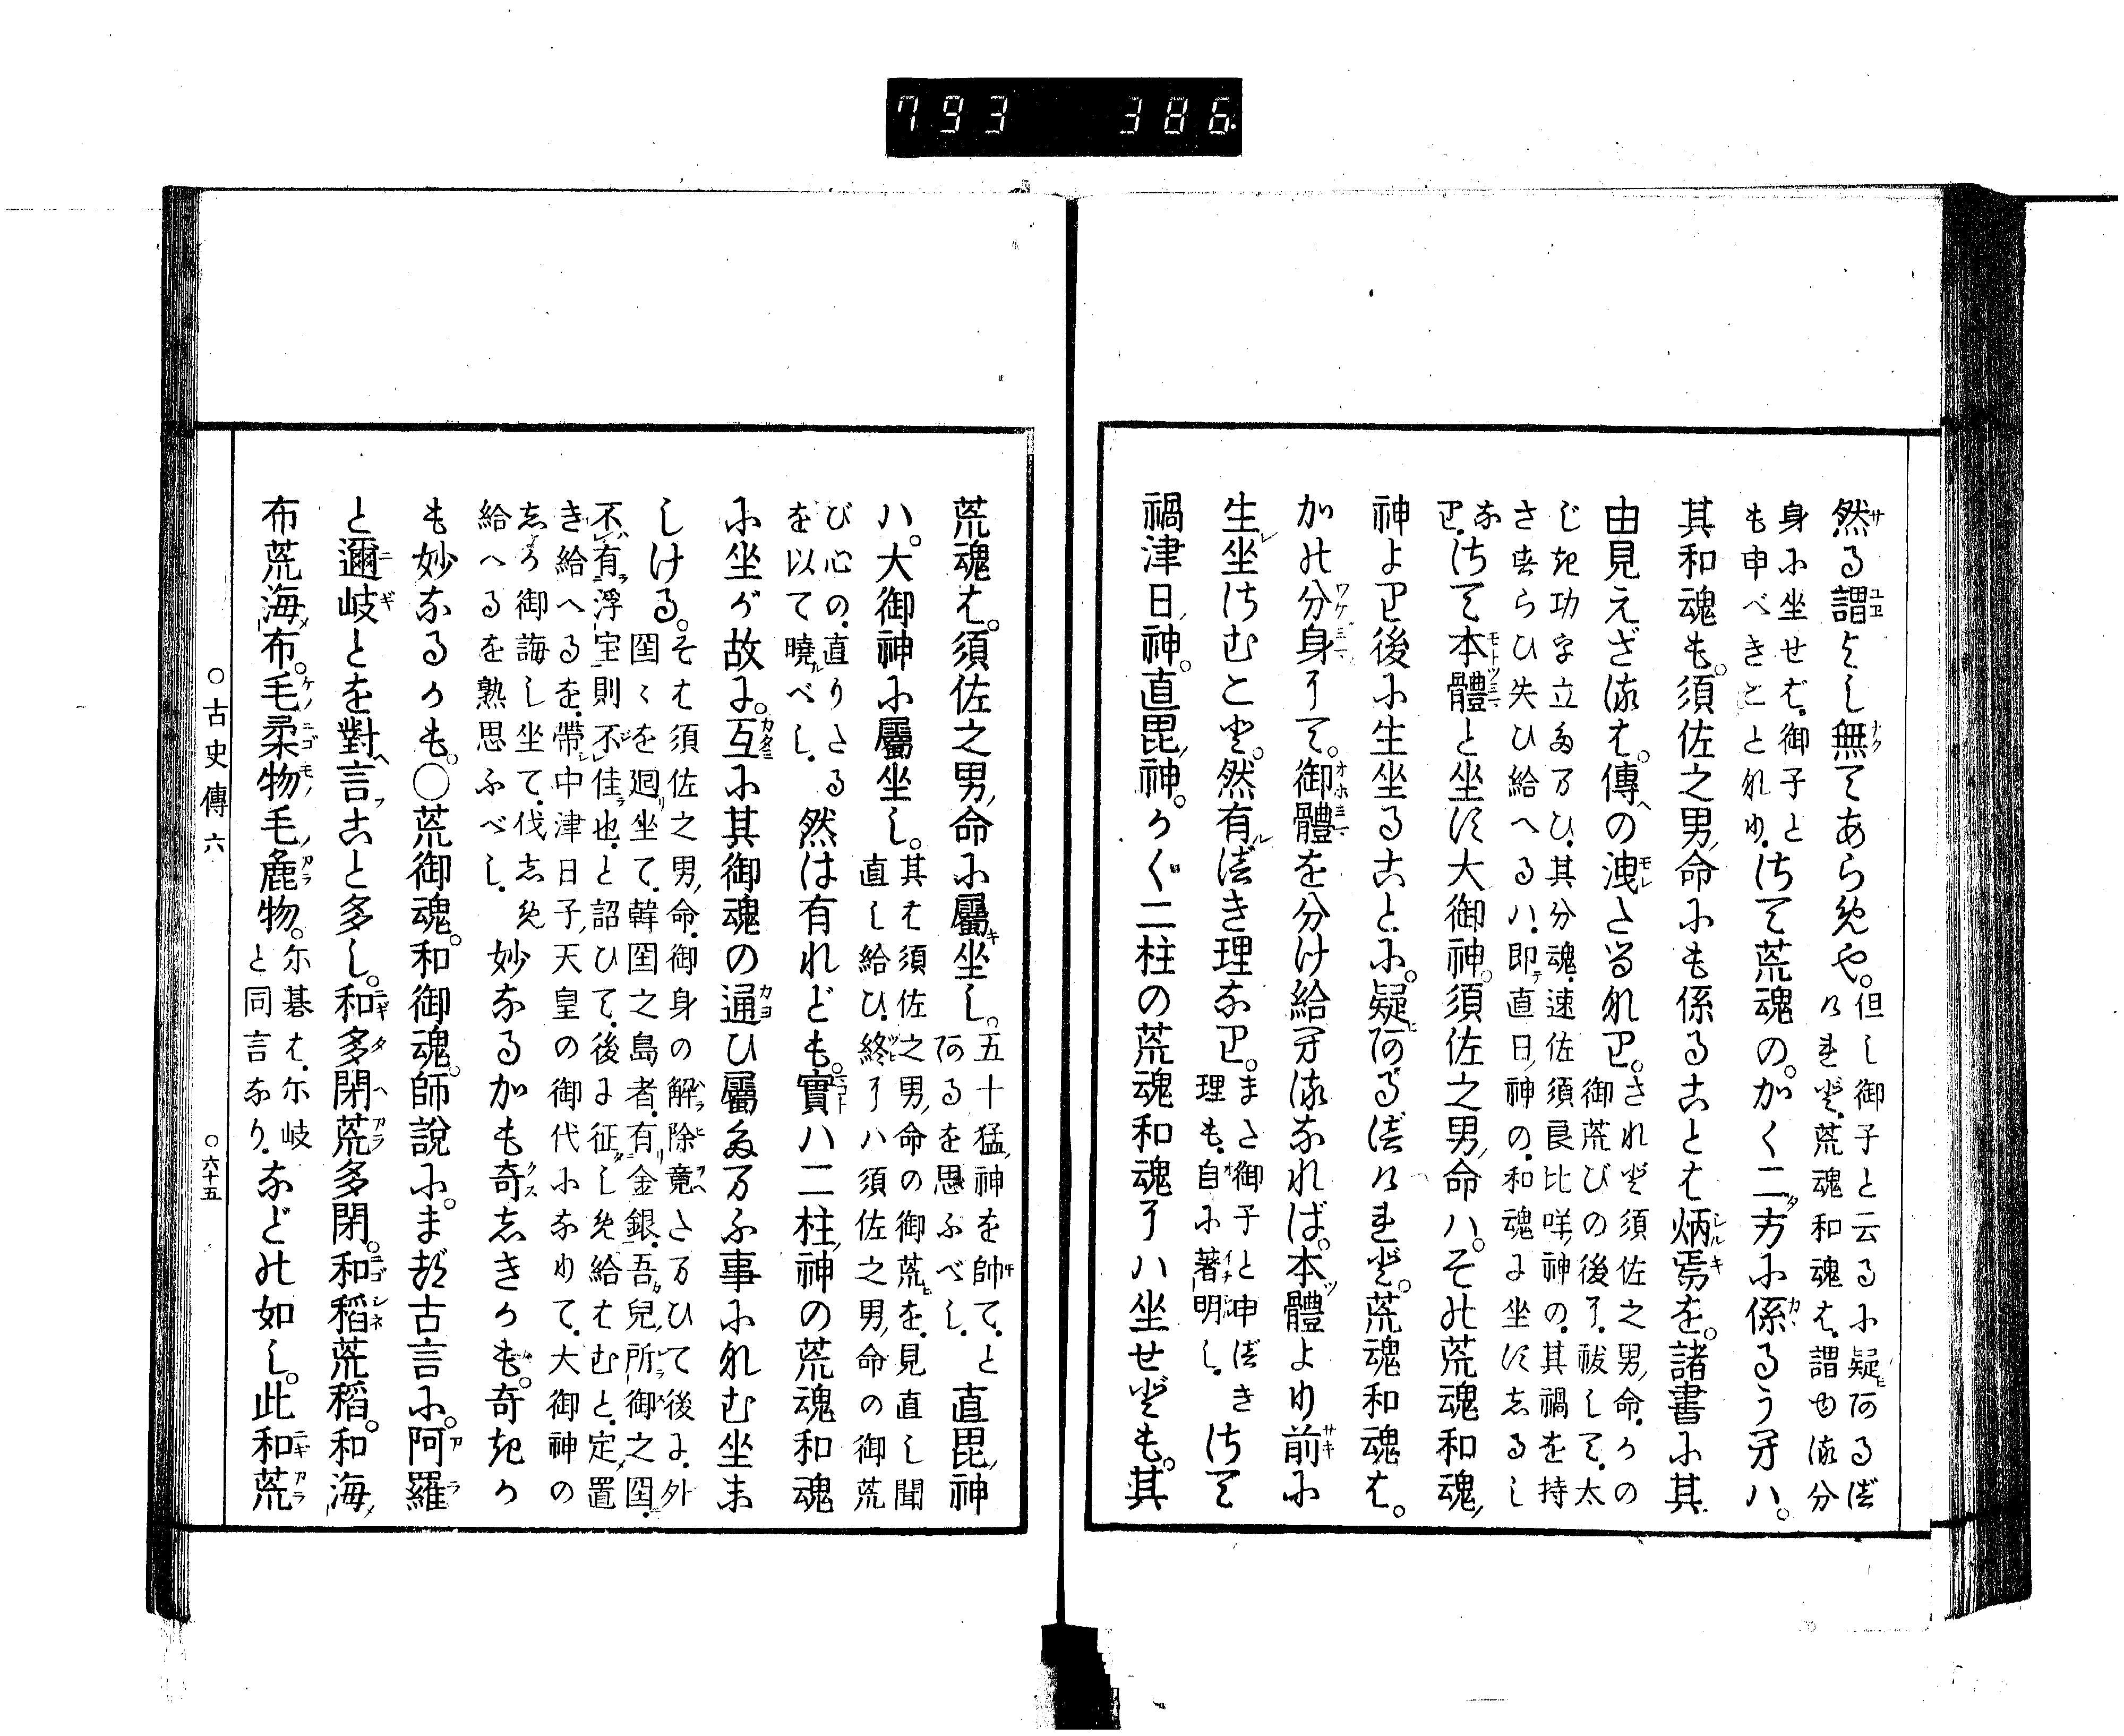 793 386
然る謂よし無てあらめや。但し御子と云るに疑ある
べけれど。荒魂和魂は。謂ゆる分
身に坐せば。御子と
も申べきことなり。さて荒魂の。かく二方に係るうへは。
其和魂も。須佐之男命にも係ることは炳焉を。諸書に其
由見えざるは。傳の洩たるなり。されど須佐之男命。かの
御荒びの後に。祓して。太
じき功を立たまひ。其分魂。速佐須良比咩神の。其禍を持
さすらひ失ひ給へるは。即直日神の。和魂に坐すしるし
なり。さて本體と坐す大御神。須佐之男命は。その荒魂和魂
神より後に生坐ることに。疑あるべけれど。荒魂和魂は。
かの分身にて。御體を分け給へるなれば。本體より前に
生坐さむこと。然有べき理なり。また御子と申べき
理も。自に著明し。さて
禍津日神。直毘神。かく二柱の荒魂和魂には坐せども。其
荒魂は。須佐之男命に屬坐し。五十猛神を帥て。と
あるを思ふべし。直毘神
は。大御神に屬坐し。其は須佐之男命の御荒を。見直し聞
直し給ひ。終には須佐之男命の御荒
び心の。直りたる
を以て曉べし。然は有れども。實は二柱神の荒魂和魂
に坐が故に。互に其御魂の通ひ屬たまふ事になむ坐ま
しける。そは須佐之男命。御身の解除竟たまひて後に。外
国々を廻坐て。韓国之島者。有金銀。吾兒所御之国。
不有浮宝則不佳也。と詔ひて。後に征しめ給はむと。定置
き給へるを。帶中津日子天皇の御代になりて。大御神の
しか御誨し坐て。伐しめ
給へるを熟思ふべし。妙なるかも奇しきかも。奇きか
も妙なるかも。〇荒御魂。和御魂。師説に。まづ古言に。阿羅
と邇岐とを對言こと多し。和多閇荒多閇。和稻荒稻。和海
布荒海布。毛柔物毛麁物。尓碁は。尓岐
と同言なり。などの如し。此和荒
〇古史傳六
〇六十五